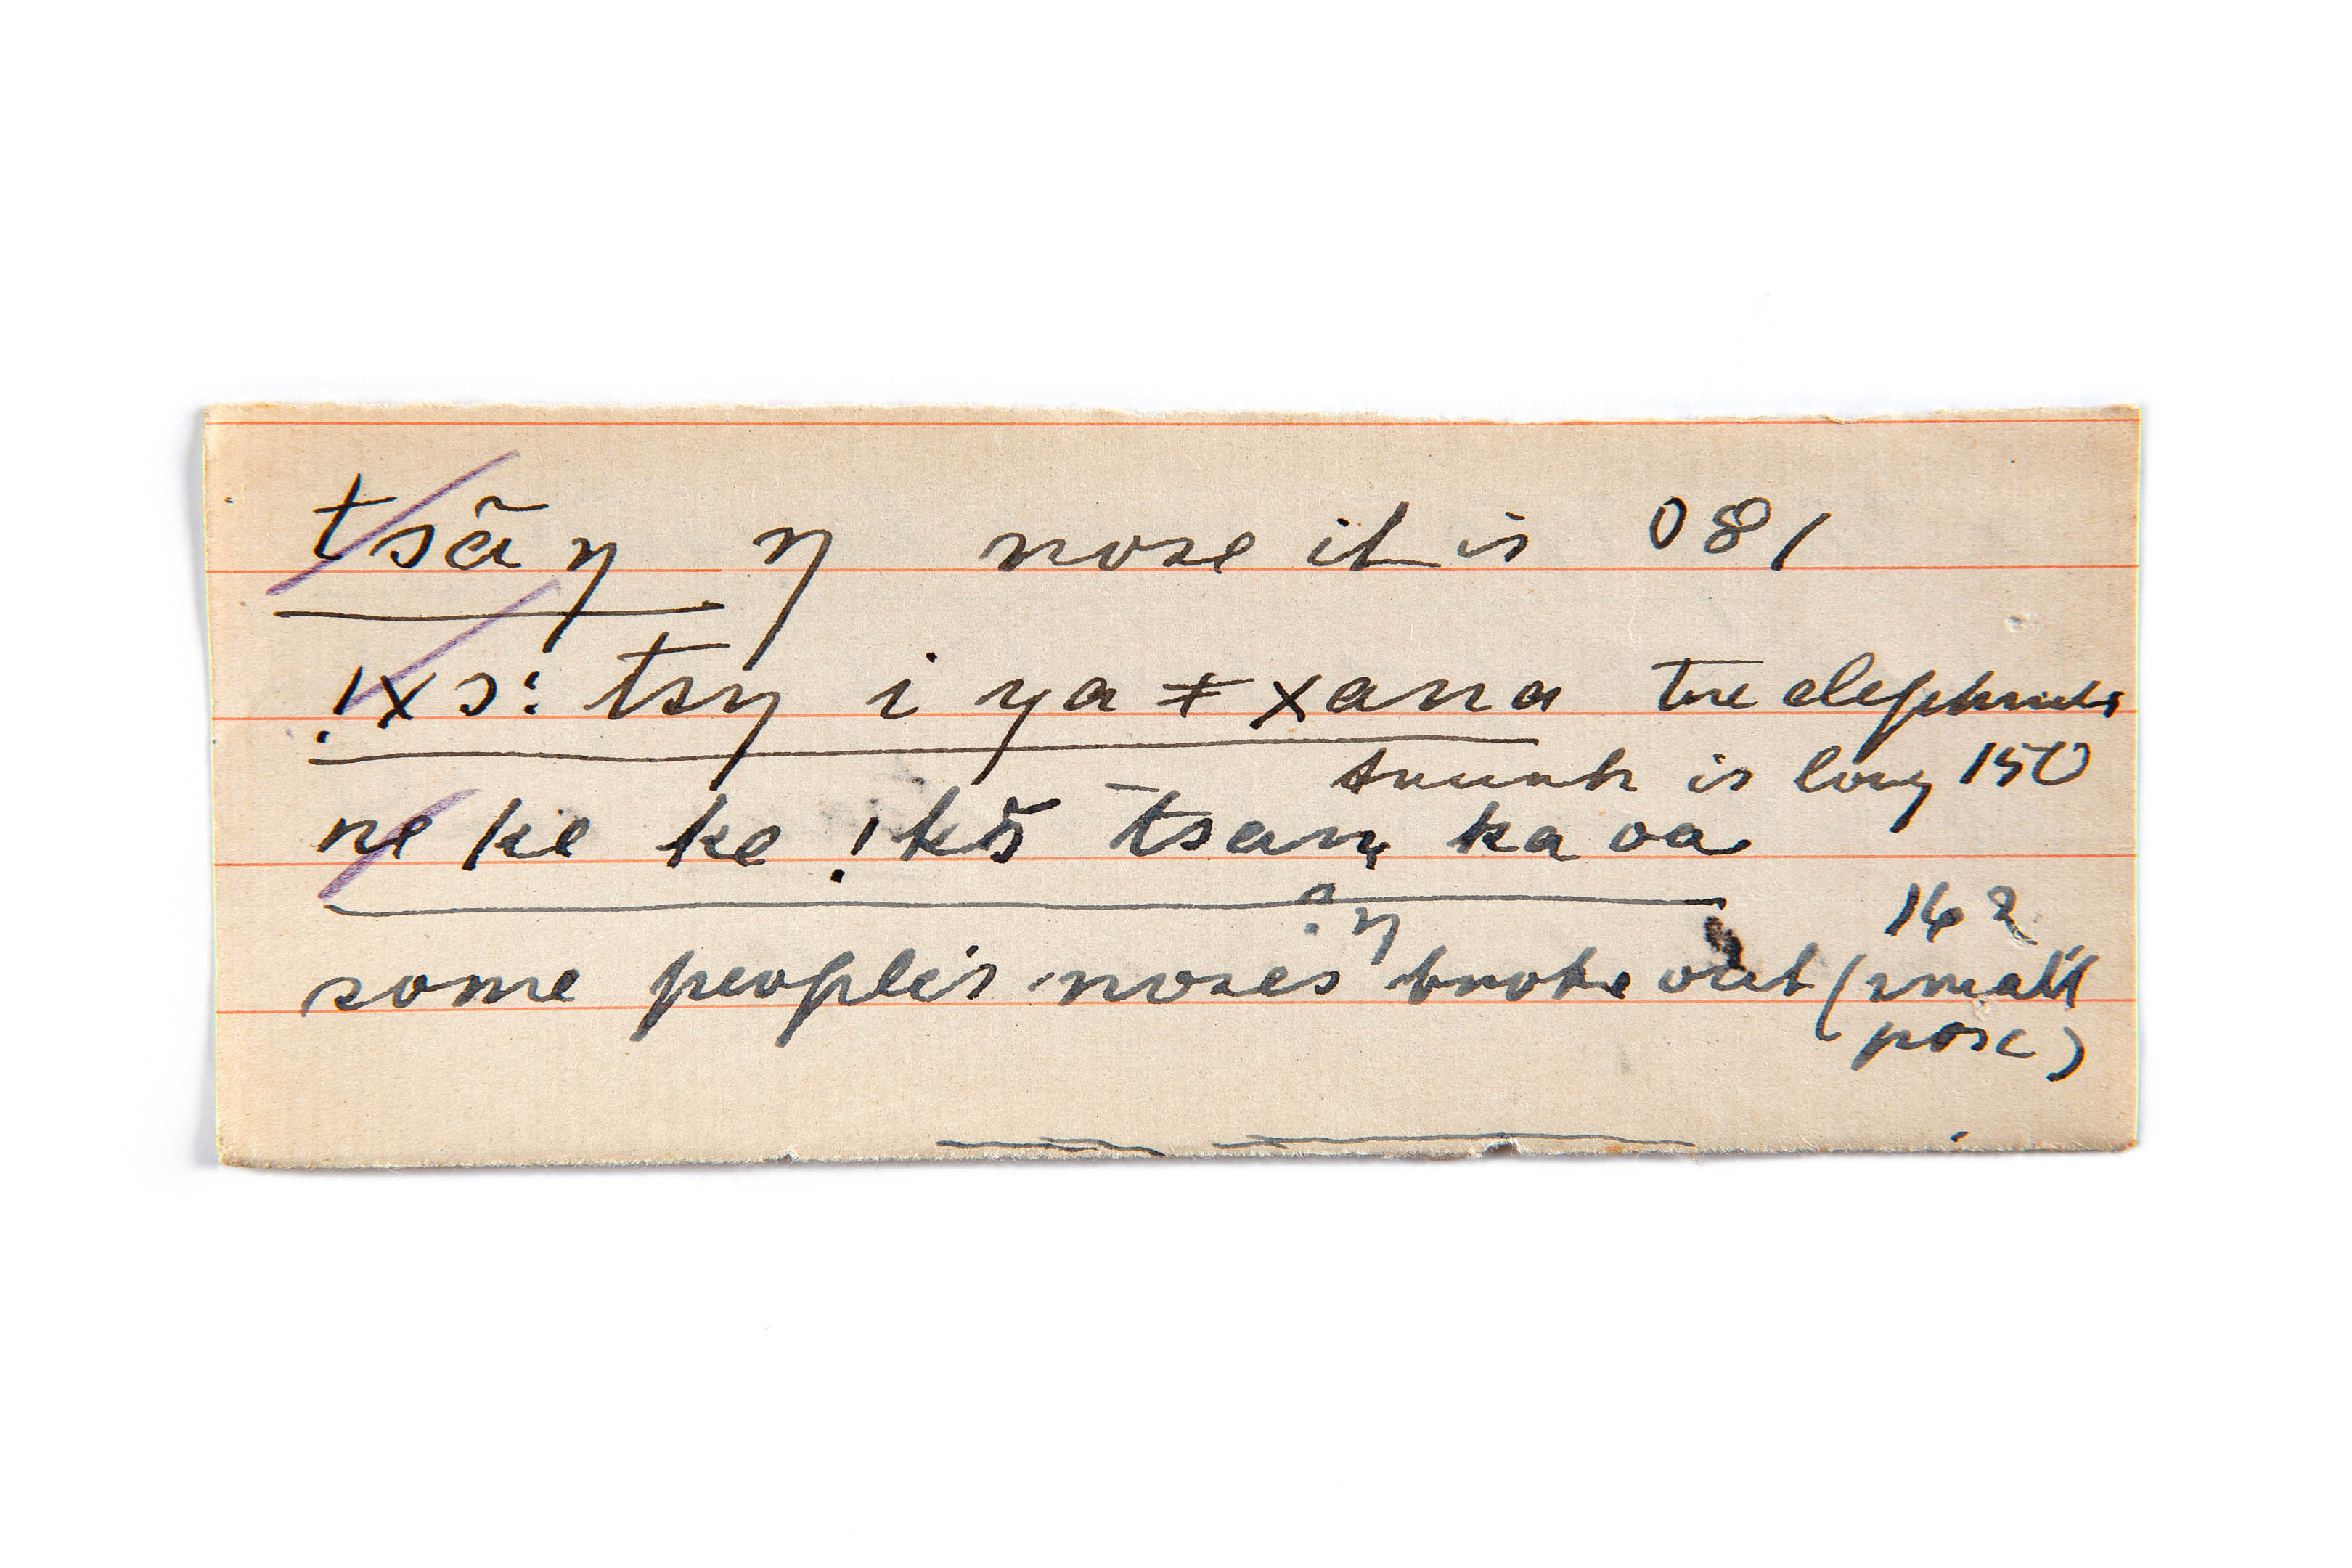 tsãŋ ŋ nose it is 081
!xɔ: tsŋ i ŋa ǂxana the elephants
trunk is long 150
ne ke ke !kɔ̃ tsaŋ ka oa
?ŋ 162
some people's noses broke out (small
pox)